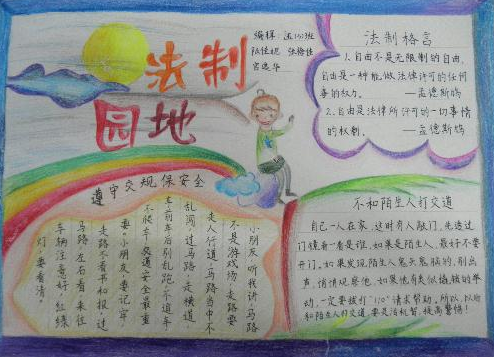 法制
园地
编辑
法制格言
1.自由不是无限制的自由,
自由是一种能做法律许可的任何
事的权力。
——孟德斯鸠
2.自由是法律所许可的一切事情
的权利。
——孟德斯鸠
遵守交规保安全
小朋友听我讲,马路
不是游戏场,走路要
走人行道,马路当中不
乱闯,过马路,走横道
车前车后别乱跑,不追车
不候车,交通安全最重
要,小朋友,要记牢,
走路不看书和报,过
马路,左右看,来往
车辆注意好,红绿
灯,要看清。
不和陌生人打交道
自己一人在家,这时有人敲门,先透过
门镜看看是谁,如果是陌生人,最好不要
开门。如果发现陌生人鬼头鬼脑的,别出
声,悄悄观察他。如果他有类似撬锁的举
动,一定要拨打“110”请求帮助。所以,以后
和陌生人打交道,要灵活机智,提高警惕!